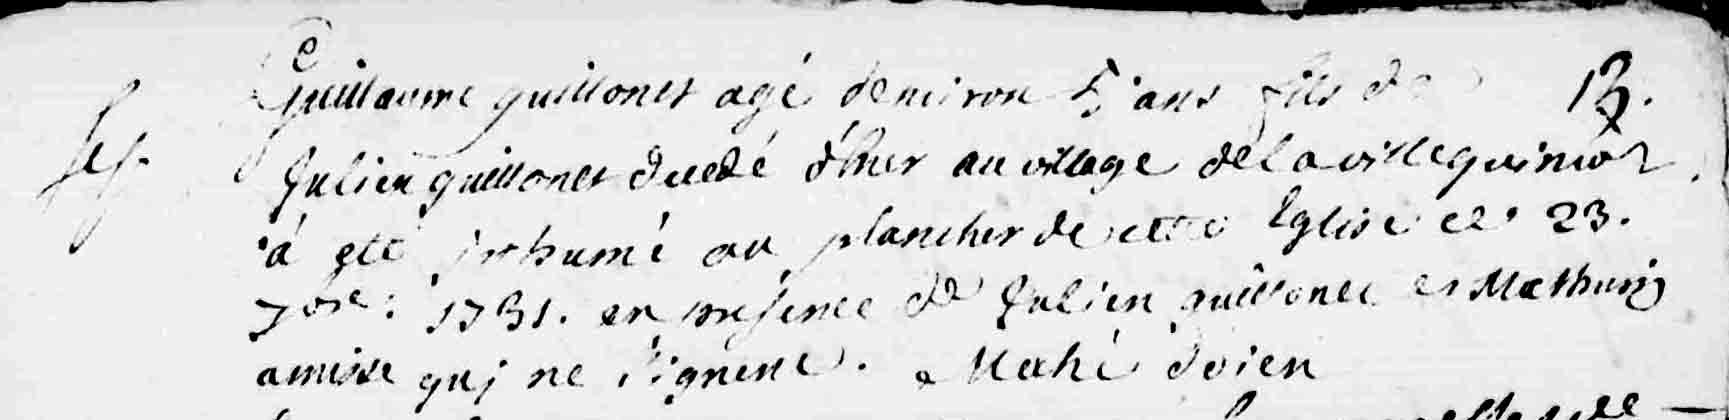 Guillaume guillonet agé denviron 5 ans fils de 13.
Julien guillonet decedé d'hier au village de la ville guimar
à eté inhumé au plancher de cette Eglise ce 23.
7bre: 1751. en presence de Julien guillonet et Mathurin
amisse quj ne signent. Mahé doien